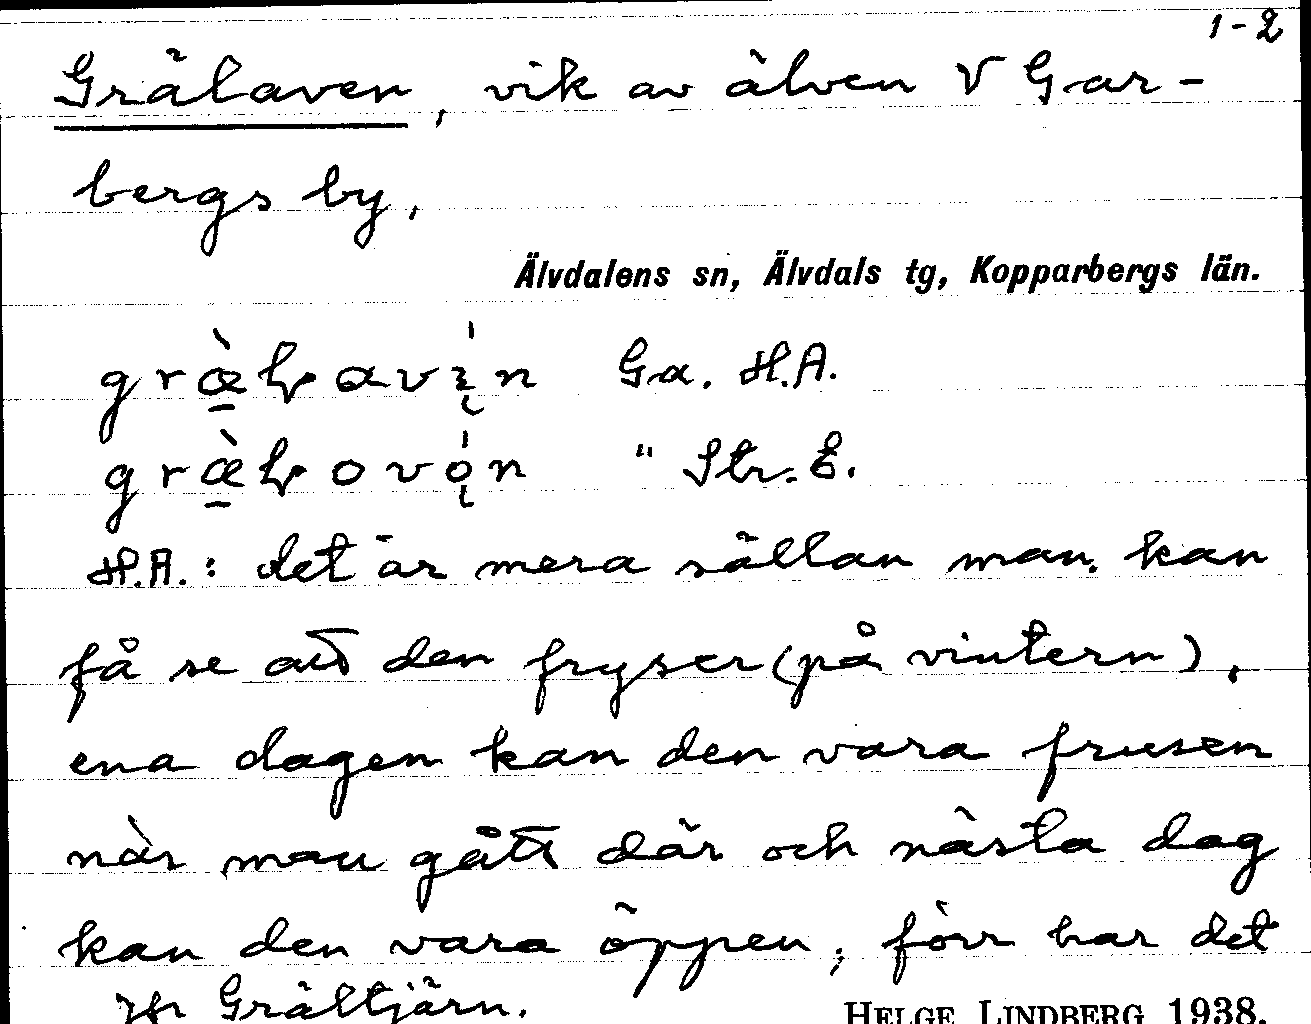 1-2
Grälaven, vik av älven V Gar-
bergs by,
Älvdalens sn, Älvdals tg, Kopparbergs län.
Ga. H.A.
" Str. E.
H.A.: det är mera sällan man kan
få se att den fryser (på vintern),
ena dagen kan den vara frusen
när man gått där och nästa dag
kan den vara öppen; förr har det
Jfr Grältjärn.
HELGE LINDBERG 1938.